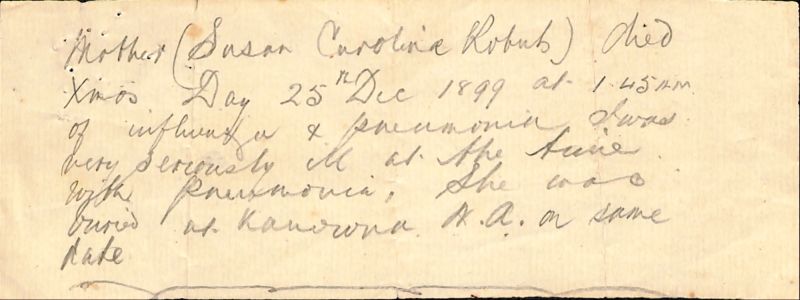 Mother (Susan Caroline Robuts) died
Xmas Day 25th Dec 1899 at 1.45
of influenza & pneumonia I was
very seriously ill at the time
with pneumonia. She was
buried at Kanowna W.A. on same
date